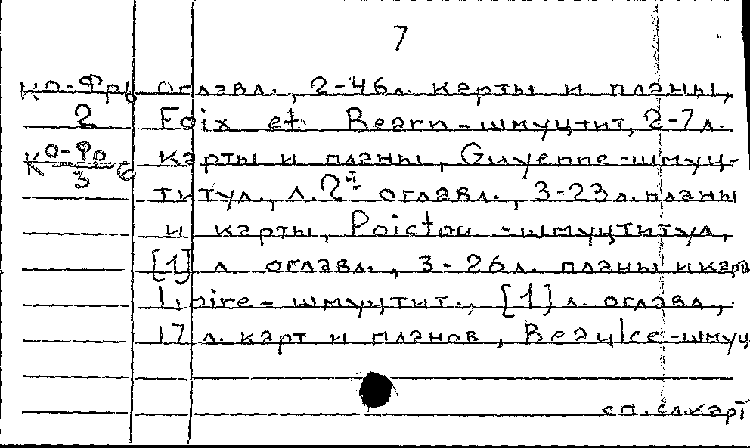 7
Ко-Фр оглавл., 2-46л. карты и планы,
2 Foix et Bearn-шмуцтит, 2-7л.
Ко-Фр/3 карты и планы, Guyenne-шмуц-
титул., л. 2й оглавл., 3-23л. планы
и карты, Poictou-шмуцтитул,
[1] л. оглавл., 3-26л. планы и карты
шмуцтит., [1] л. оглавл,
17 л. карт и планов, шмуц
сл. карт